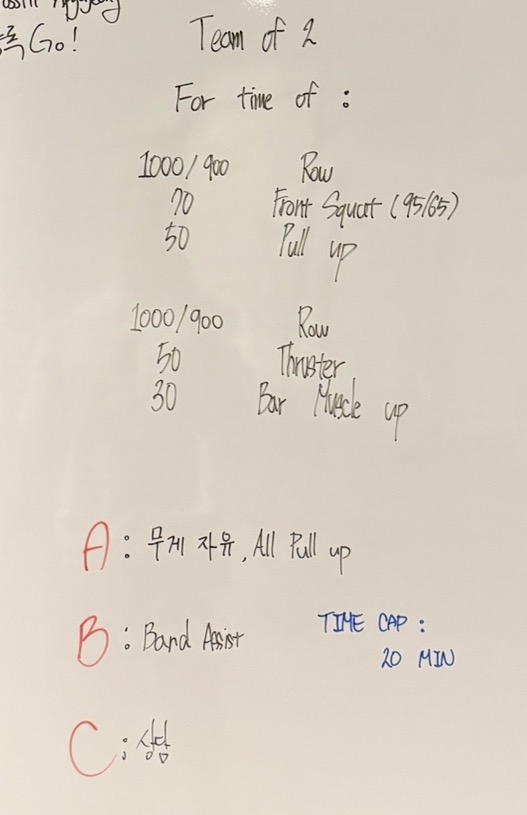 Go!
Team of 2
For time of :
1000/900 Row
70 Front Squat (95/65)
50 Pull up
1000/900 Row
50 Thruster
30 Bar Muscle up
A : 무게 자유, All Pull up
B : Band Assist
TIME CAP :
20 MIN
C : 상담